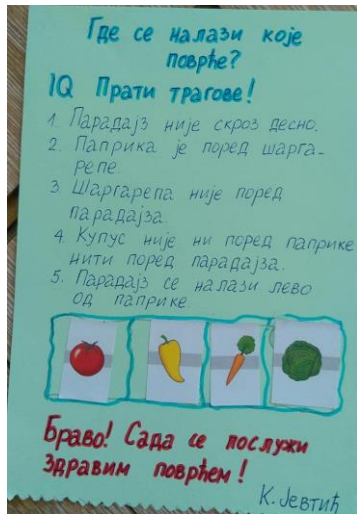 Где се налази које
поврће?
IQ Прати трагове!
1. Парадајз није скроз десно.
2. Паприка је поред шарга-
репе.
3 Шаргарепа није поред
парадајза
4 Купус није ни поред паприке
нити поред парадајза.
5. Парадајз се налази лево
од паприке.
Браво! Сада се послужи
здравим поврћем!
К. Јевтић